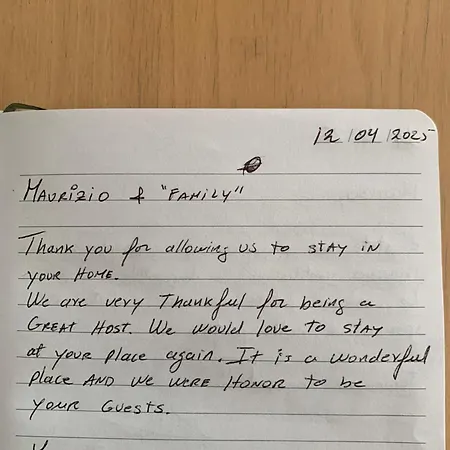 12/04/2025
Maurizio & "Family"
Thank you for allowing us to stay in
your Home.
We are very Thankful for being a
Great Host. We would love to stay
at your place again. It is a wonderful
place and we were Honor to be
your Guests.